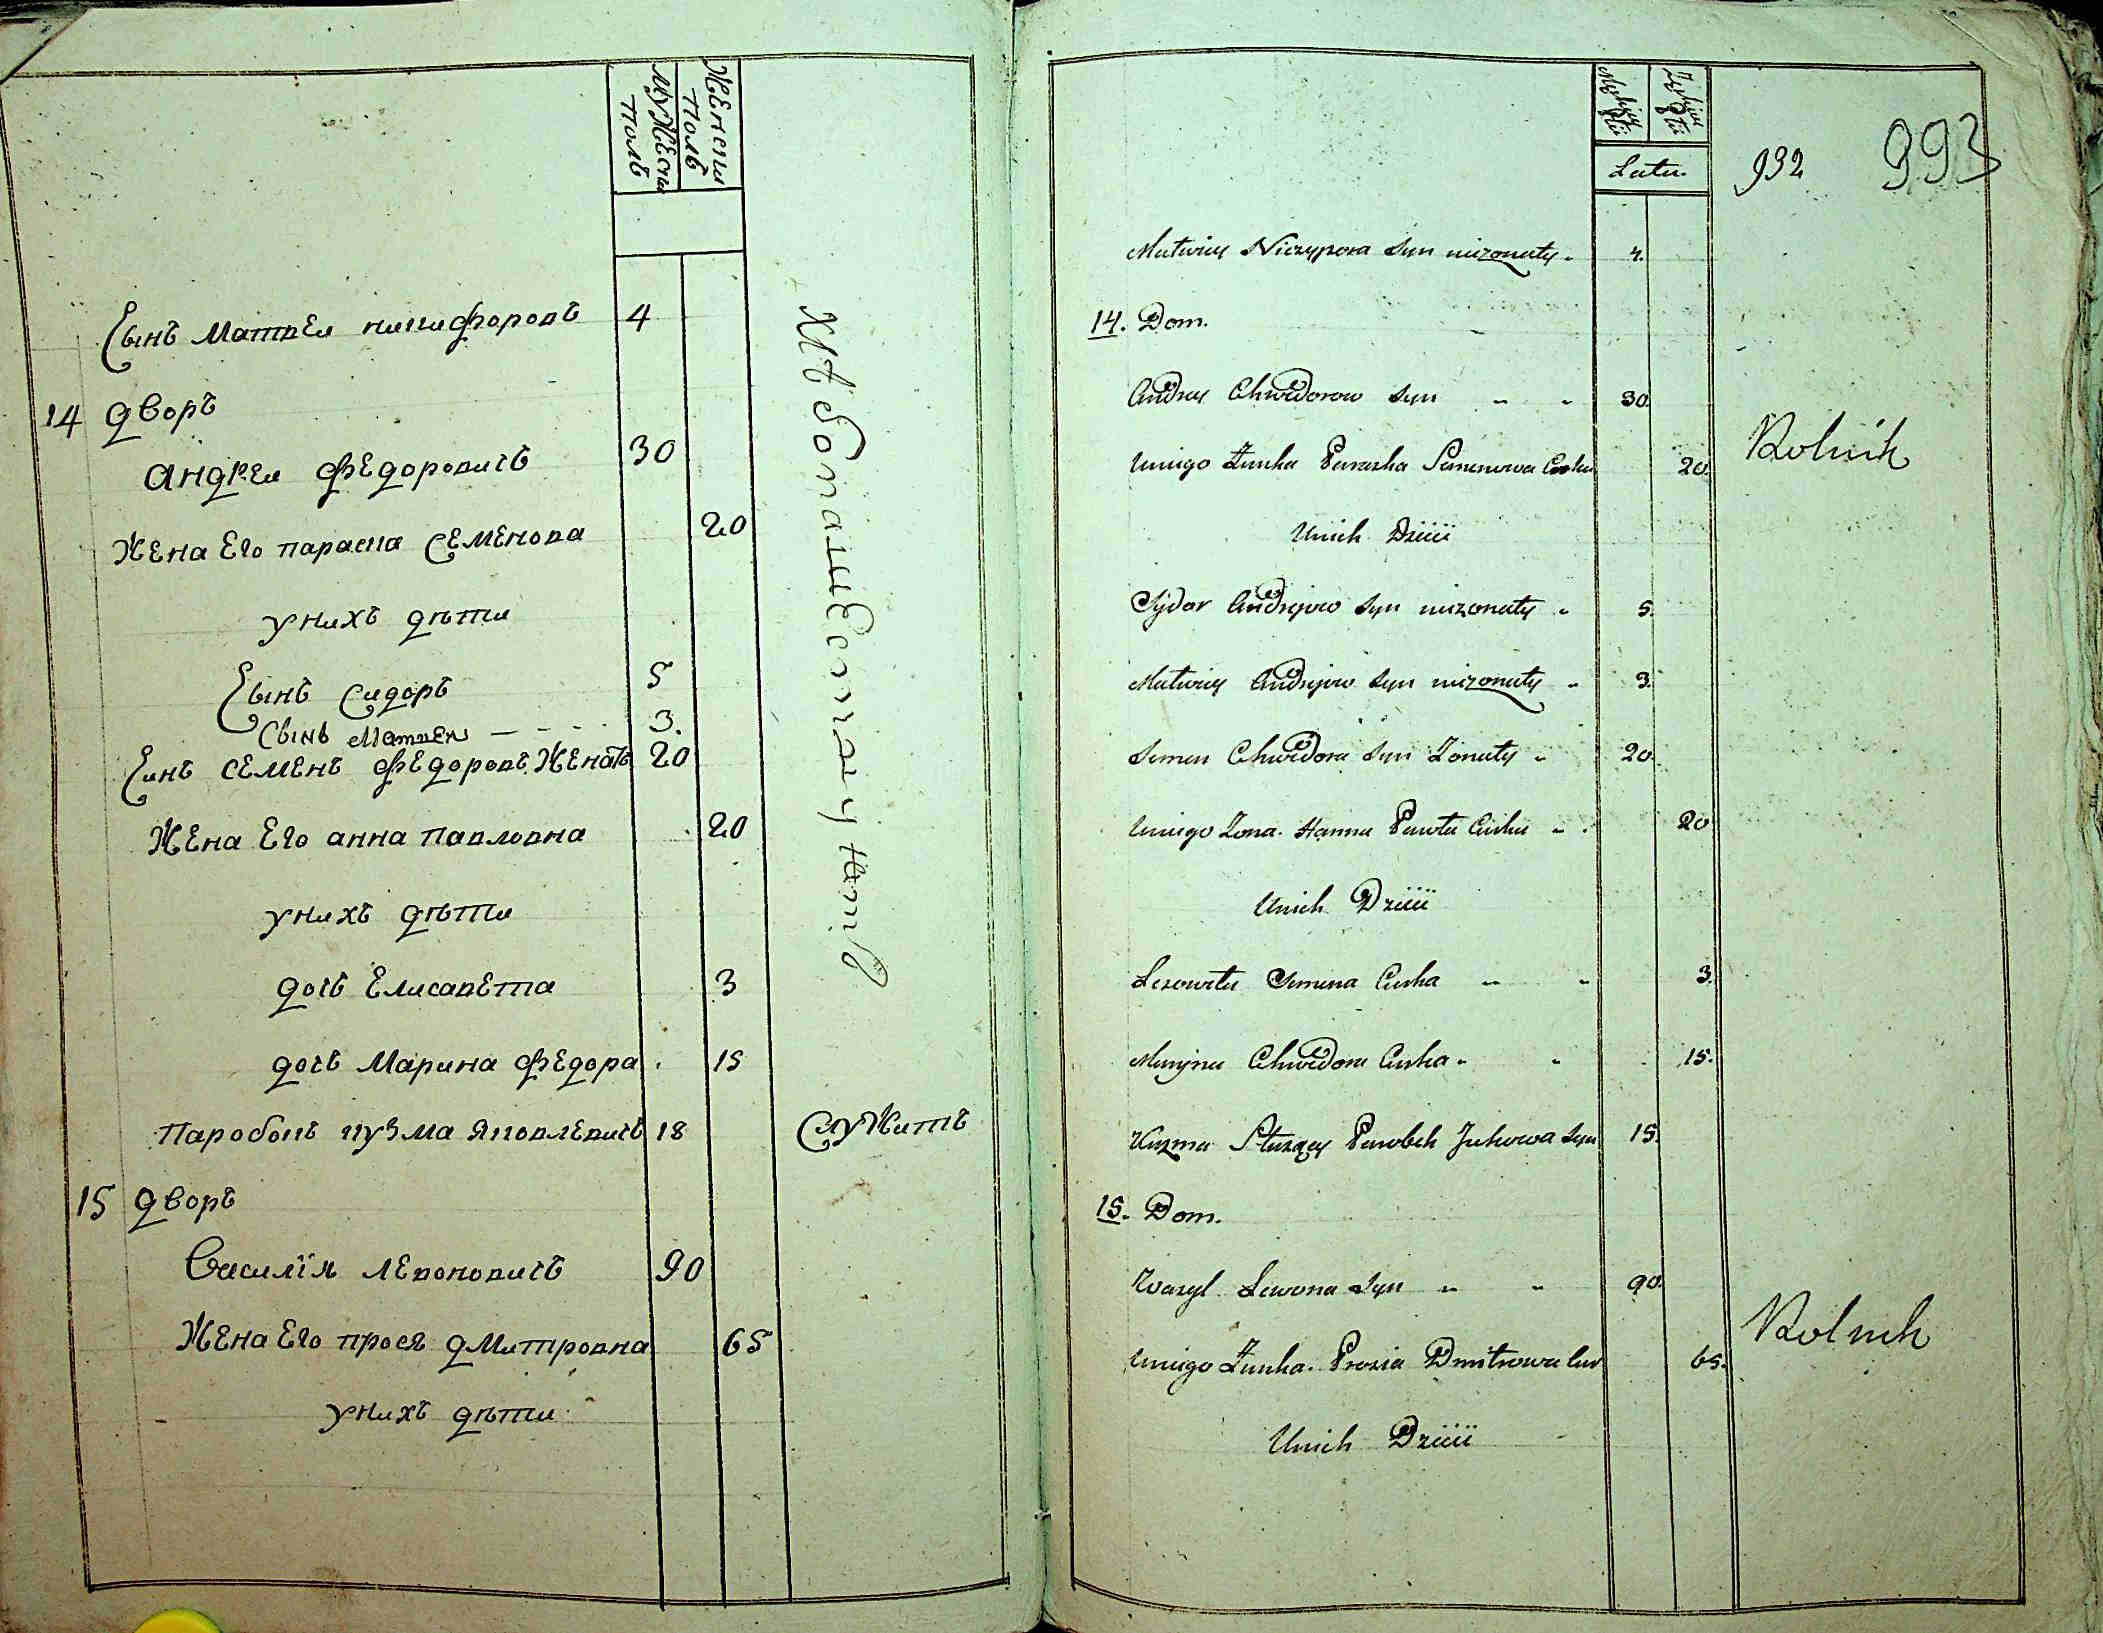 Мужески Полъ
Женски Полъ
Сынъ Матвеи никифоровъ 4
14 Дворъ
Андреи Федоровичъ 30
Жена Его параска Семенова 20
у нихъ дѣти
Сынъ Сидоръ 5
Сынъ Матвеи 3.
Синъ Семенъ Федоровъ Женатъ 20
Жена Его анна Павловна 20
у нихъ дѣти
дочь Елисавета 3
дочь Марина Федора 15
Паробокъ кузма Яковлевичъ 18 Служитъ
15 Дворъ
Василій Левоновичъ 90
Жена Его прося дмитровна 65
у нихъ дѣти
Хлѣбопашеством
Latu.
932 993
Matwiey Niczypora Syn niezonaty 4.
14. Dom.
Andrey Chwedorow Syn 30.
Uniego Zunka Paraska Semenowa Curka 20.
Unich Dzieci
Rolnik
Sydor Andrejow Syn niezonaty 5.
Matwiey Andrejow Syn niezonaty 3.
Semen Chwedora Syn Zonaty 20.
Uniego Zona Hanna Pawła Curka 20
Unich Dzieci
Lezoweta Semena Curka 3.
Maryna Chwedora Curka 15.
Kuzma Służący Parobek Jakowa Syn 15.
15. Dom.
Wasyl Lewona Syn 90.
Uniego Zunka Prosia Dmitrowa Cur 65.
Rolnik
Unich Dzieci